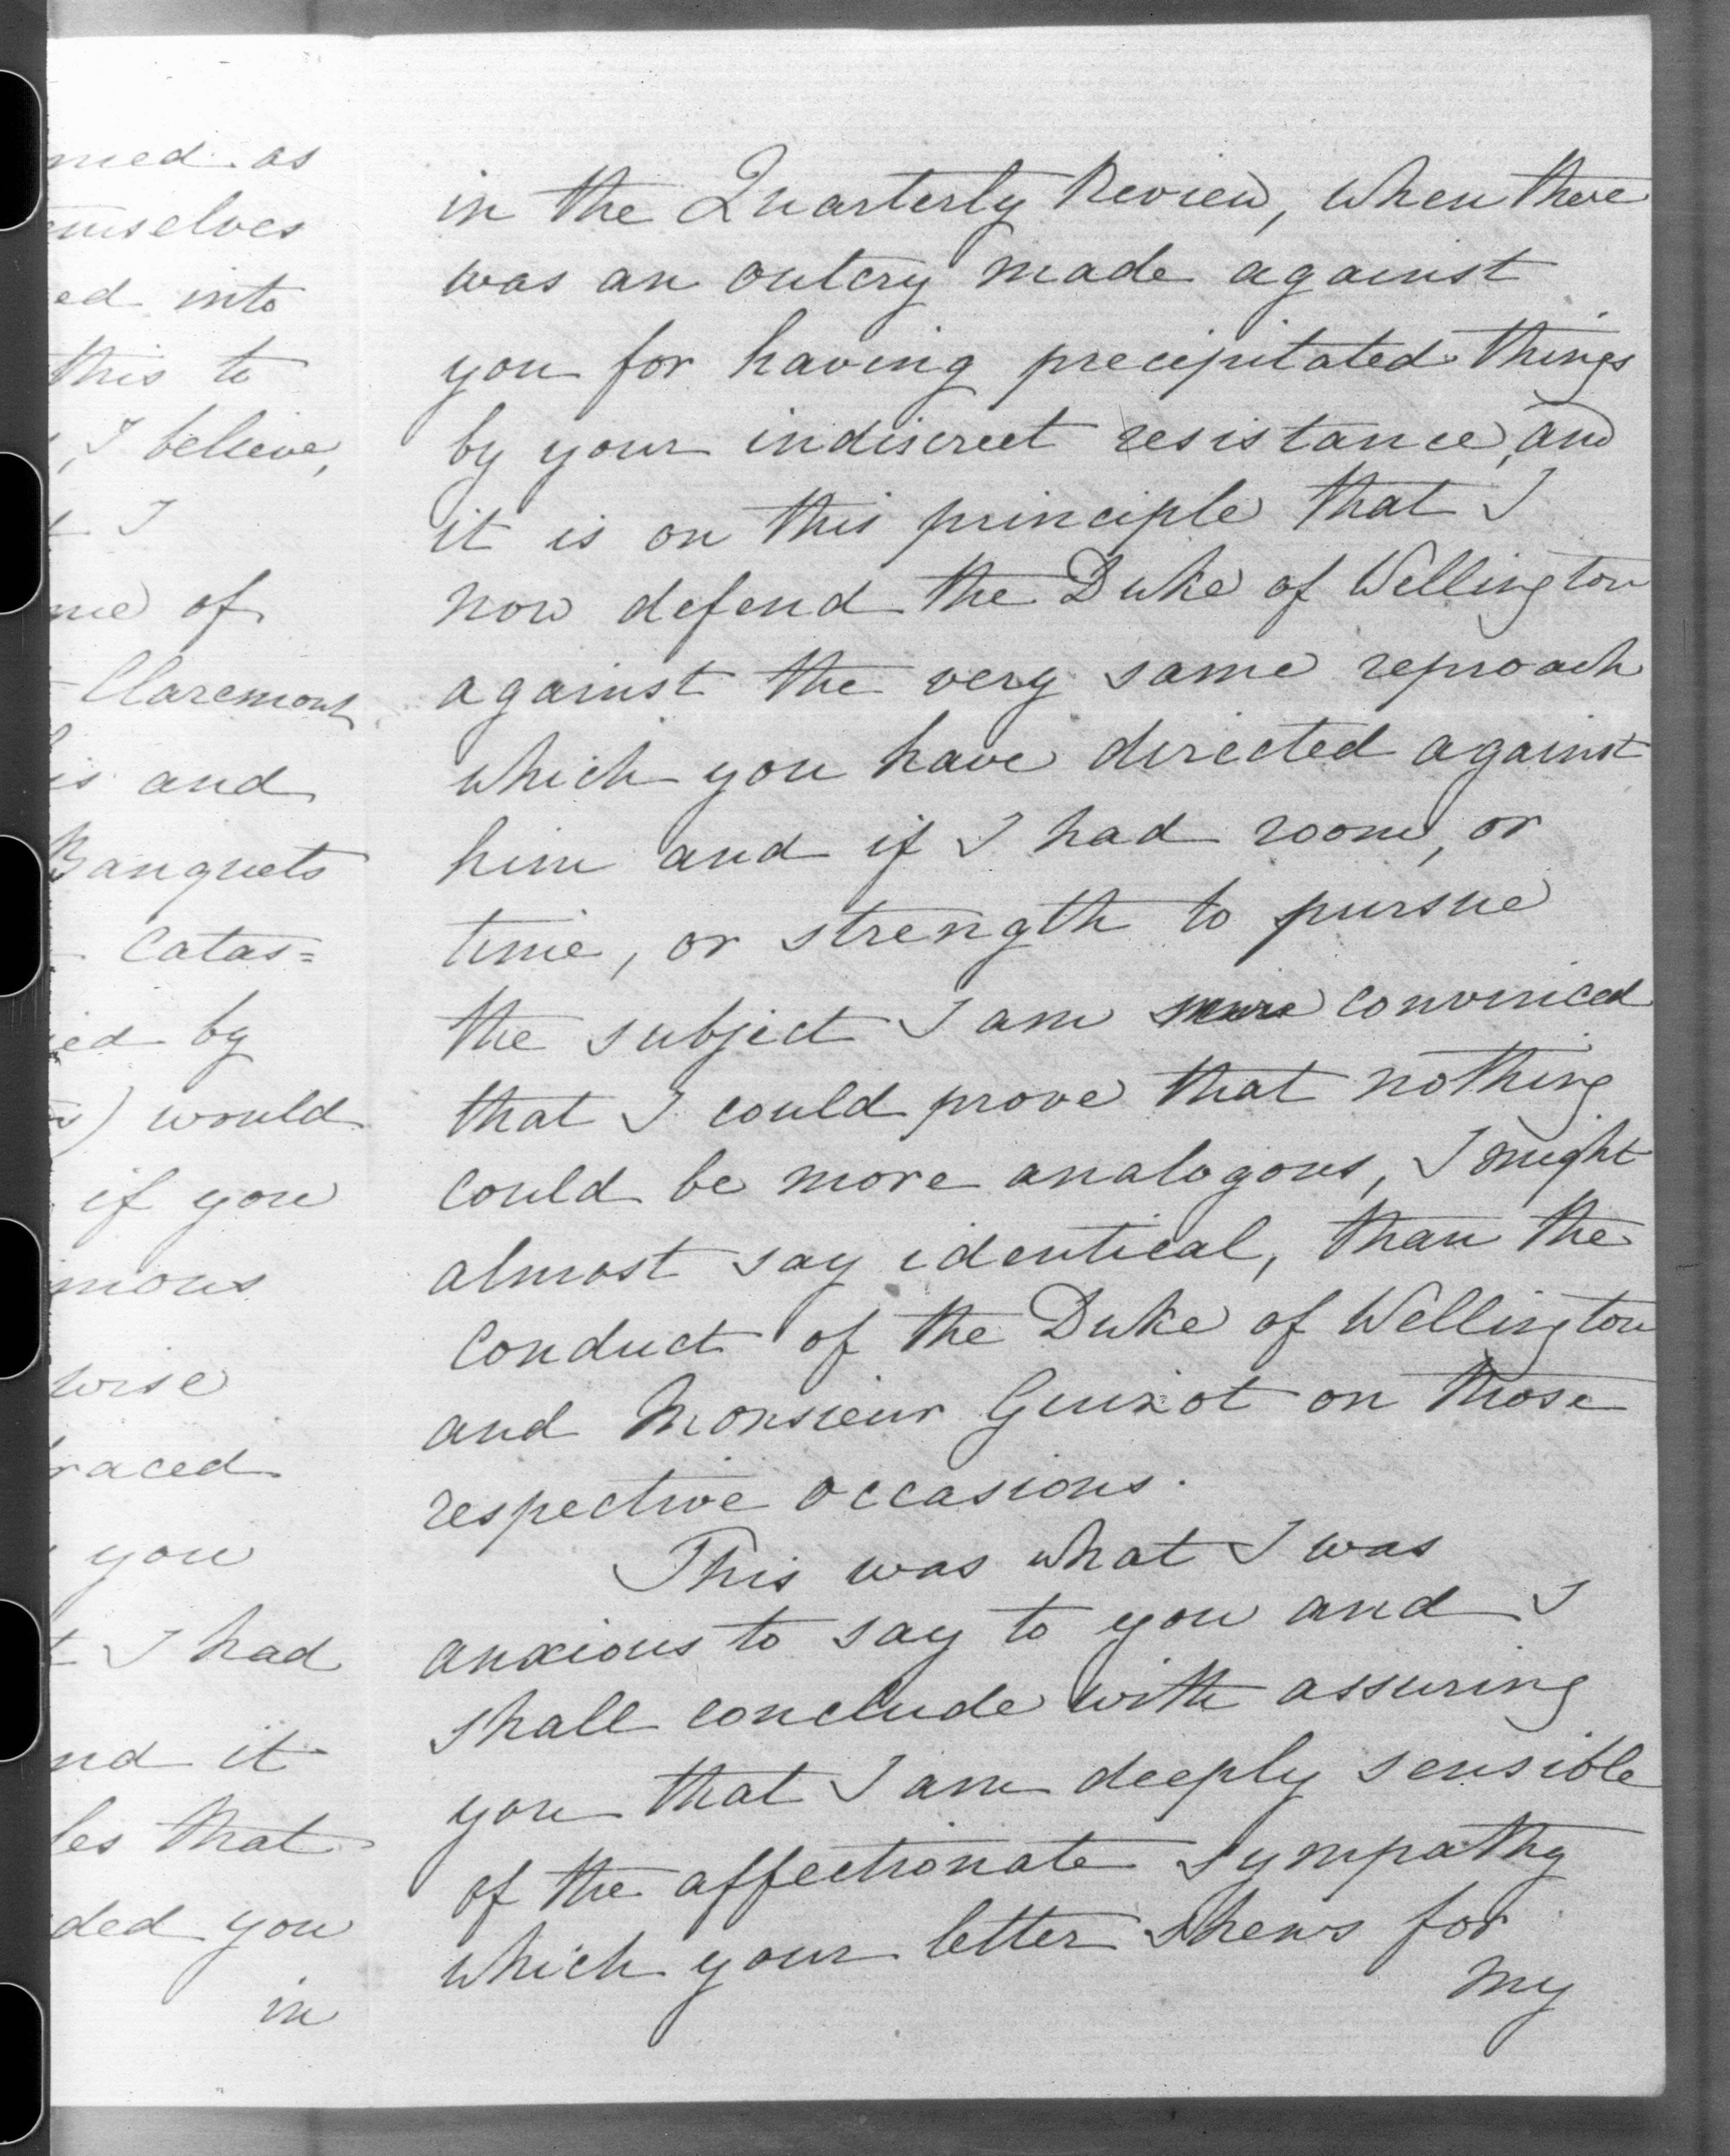 med as
emselves
ed into
this to
, I believe,
t I
me of
Claremont
is and
Banquets
Catas=
ied by
) would
if you
mous
wise
raced
you
t I had
nd it
les that
ded you
in
in the Quarterly Review, when there
was an outcry made against
you for having precipitated things
by your indiscreet resistance, and
it is on this principle that I
now defend the Duke of Wellington
against the very same reproach
which you have directed against
him and if I had room, or
time, or strength to pursue
the subject I am convinced
that I could prove that nothing
could be more analogous, I might
almost say identical, than the
conduct of the Duke of Wellington
and Monsieur Guizot on those
respective occasions.
This was what I was
anxious to say to you and I
shall conclude with assuring
you that I am deeply sensible
of the affectionate sympathy
which your letter shews for
my